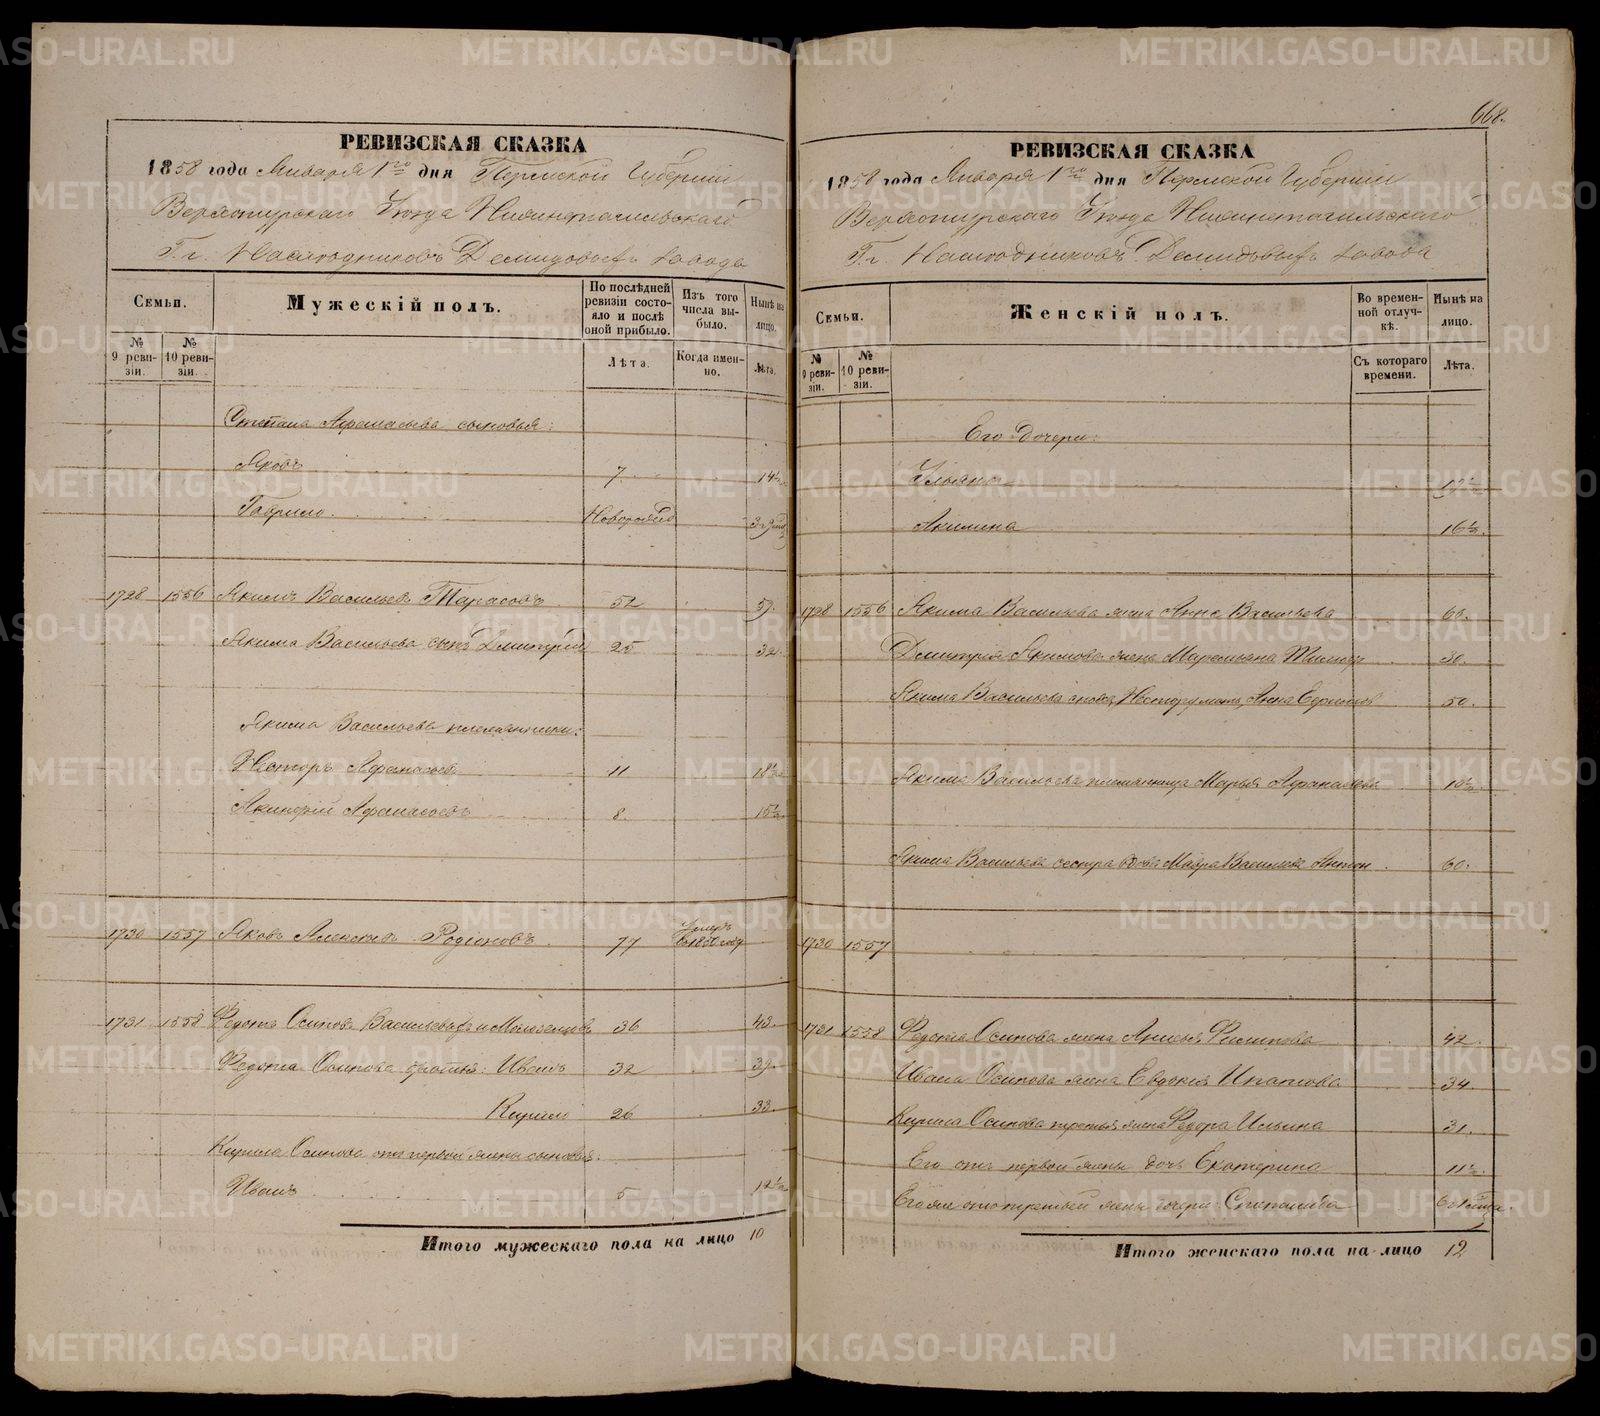 668.
РЕВИЗСКАЯ СКАЗКА
1858 года Января 1го дня Пермской Губернии
Верхотурскаго Уѣзда Нижнетагильскаго
Г.г. Наслѣдниковъ Демидовыхъ завода
Семьи.
Мужескій полъ.
По послѣдней ревизіи состояло и послѣ оной прибыло.
Изъ того числа выбыло.
Нынѣ на лицо.
№ 9 ревизіи.
№ 10 ревизіи.
Лѣта.
Когда именно.
Лѣта.
Степана Афанасьева сыновья:
Яковъ 7. 14½
Гаврило Новорожд
1728 1556 Якимъ Васильевъ Тарасовъ 52 59.
Якима Васильева сынъ Дмитрій 25 32.
Якима Васильева племянники:
Несторъ Афанасьевъ 11 18½
Афанасьевъ 8. 15½
1730 1557 Яковъ Алексѣевъ Родіоновъ 77 Умеръ въ 1850 году
1731 1558 Федотъ Осиповъ 36 43.
Федота Осипова братья: Иванъ 32 39.
Кирило 26 33.
Кирила Осипова отъ первой жены сыновья:
Иванъ 5 12½
Итого мужескаго пола на лицо 10
РЕВИЗСКАЯ СКАЗКА
1858 года Января 1го дня Пермской Губерніи
Верхотурскаго Уѣзда Нижнетагильскаго
Г.г. Наслѣдниковъ Демидовыхъ завода
Семьи.
Женскій полъ.
Во временной отлучкѣ.
Нынѣ на лицо.
№ 9 ревизіи.
№ 10 ревизіи.
Съ котораго времени.
Лѣта.
Его дочери:
Ульяна
Акилина 16½.
1728 1556 Якима Васильева жена Анна Васильева 60.
Дмитрія Якимова жена 30.
Якима Васильева Нестору мать, Анна 50.
Якима Васильева племянница Марья Афанасьева 10½.
Якима Васильева сестра вдова Мавра Васильева 60.
1730 1557
1731 1558 Федота Осипова жена Филипова 42.
Ивана Осипова жена Евдокія Игнатова 34.
Кирила Осипова третья жена Федора Ильина 31.
Его отъ первой жены дочь Екатерина 11½.
Его же отъ третьей жены дочери: Степанида
Итого женскаго пола на лицо 12